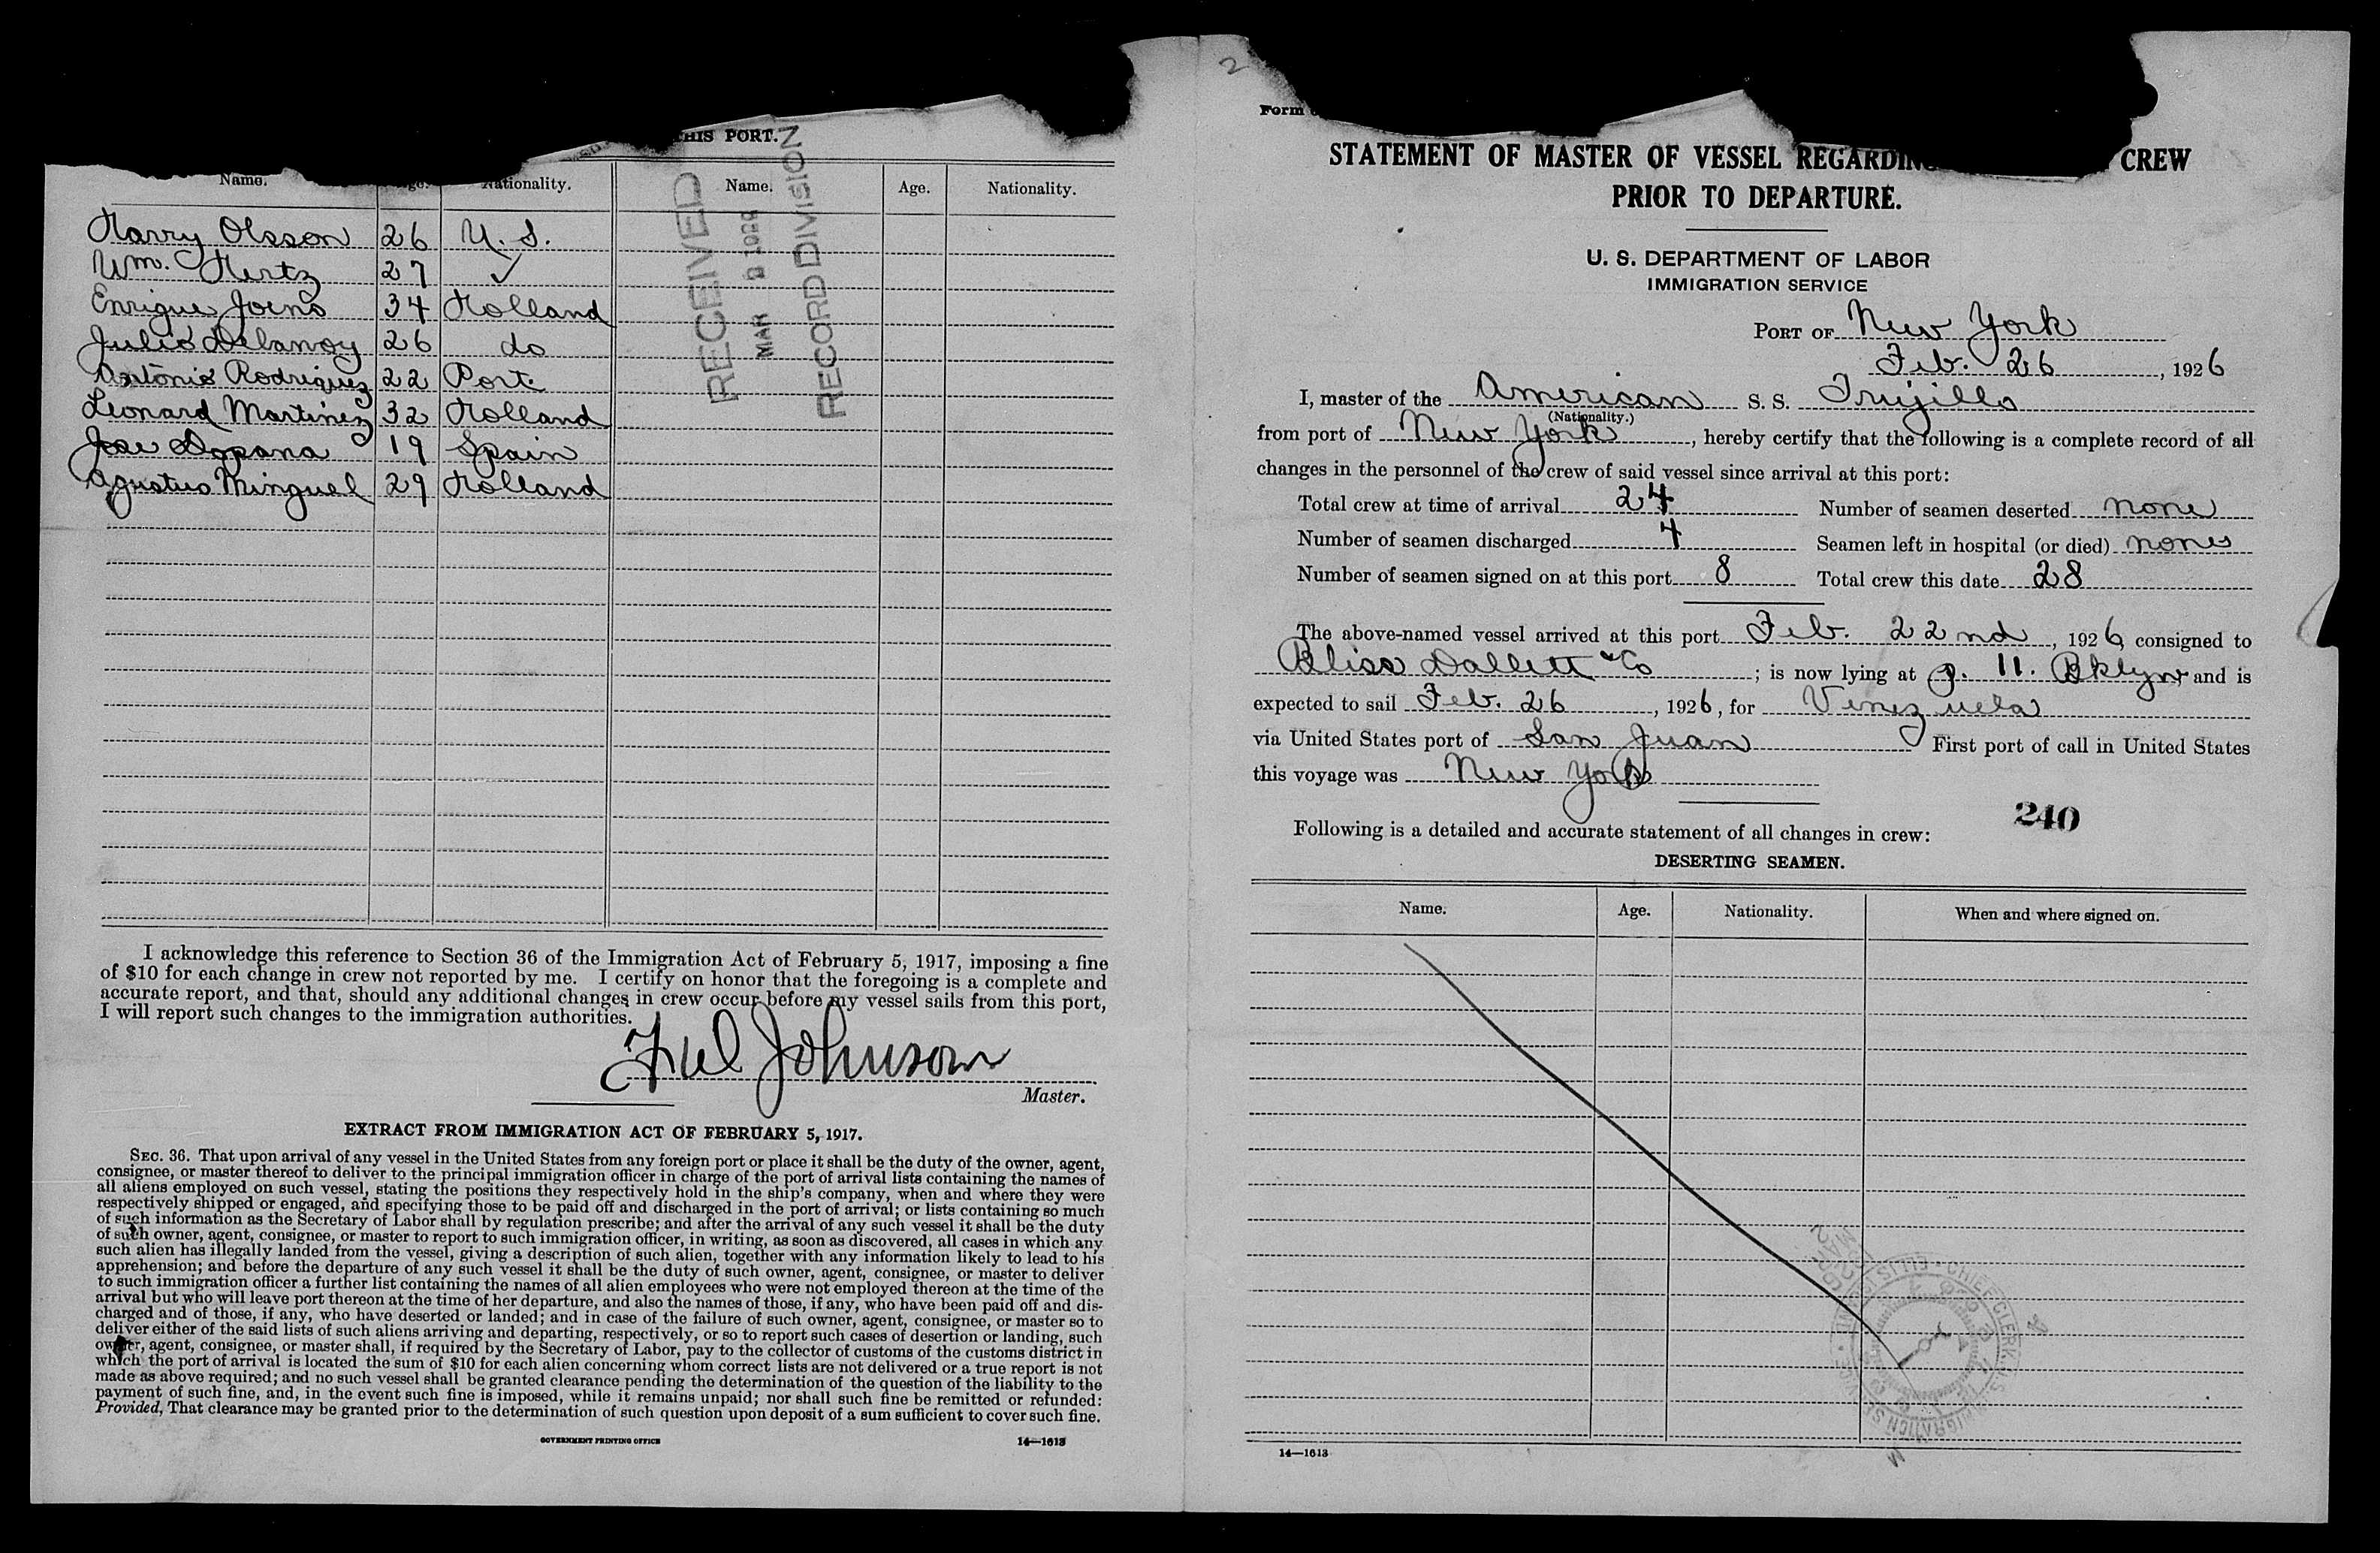 HIS PORT.
Name. Age. Nationality. Name. Age. Nationality.
Harry Olsson 26 U.S.
Wm. Hertz 27 ✓
Enrique Joens 34 Holland
Julio Delanoy 26 do
Antonio Rodriguez 22 Porte
Leonard Martinez 32 Holland
Jose Dopana 19 Spain
Agustus Minguel 29 Holland
RECEIVED
MAR
RECORD DIVISION
I acknowledge this reference to Section 36 of the Immigration Act of February 5, 1917, imposing a fine
of $10 for each change in crew not reported by me. I certify on honor that the foregoing is a complete and
accurate report, and that, should any additional changes in crew occur before my vessel sails from this port,
I will report such changes to the immigration authorities.
Johnson
Master.
EXTRACT FROM IMMIGRATION ACT OF FEBRUARY 5, 1917.
SEC. 36. That upon arrival of any vessel in the United States from any foreign port or place it shall be the duty of the owner, agent,
consignee, or master thereof to deliver to the principal immigration officer in charge of the port of arrival lists containing the names of
all aliens employed on such vessel, stating the positions they respectively hold in the ship's company, when and where they were
respectively shipped or engaged, and specifying those to be paid off and discharged in the port of arrival; or lists containing so much
of such information as the Secretary of Labor shall by regulation prescribe; and after the arrival of any such vessel it shall be the duty
of such owner, agent, consignee, or master to report to such immigration officer, in writing, as soon as discovered, all cases in which any
such alien has illegally landed from the vessel, giving a description of such alien, together with any information likely to lead to his
apprehension; and before the departure of any such vessel it shall be the duty of such owner, agent, consignee, or master to deliver
to such immigration officer a further list containing the names of all alien employees who were not employed thereon at the time of the
arrival but who will leave port thereon at the time of her departure, and also the names of those, if any, who have been paid off and dis-
charged and of those, if any, who have deserted or landed; and in case of the failure of such owner, agent, consignee, or master so to
deliver either of the said lists of such aliens arriving and departing, respectively, or so to report such cases of desertion or landing, such
owner, agent, consignee, or master shall, if required by the Secretary of Labor, pay to the collector of customs of the customs district in
which the port of arrival is located the sum of $10 for each alien concerning whom correct lists are not delivered or a true report is not
made as above required; and no such vessel shall be granted clearance pending the determination of the question of the liability to the
payment of such fine, and, in the event such fine is imposed, while it remains unpaid; nor shall such fine be remitted or refunded:
Provided, That clearance may be granted prior to the determination of such question upon deposit of a sum sufficient to cover such fine.
GOVERNMENT PRINTING OFFICE 14—1613
2
Form
STATEMENT OF MASTER OF VESSEL REGARDING CREW
PRIOR TO DEPARTURE.
U. S. DEPARTMENT OF LABOR
IMMIGRATION SERVICE
PORT OF New York
Feb. 26, 1926
I, master of the American S. S. Trujillo
(Nationality.)
from port of New York, hereby certify that the following is a complete record of all
changes in the personnel of the crew of said vessel since arrival at this port:
Total crew at time of arrival 24 Number of seamen deserted none
Number of seamen discharged 4 Seamen left in hospital (or died) none
Number of seamen signed on at this port 8 Total crew this date 28
The above-named vessel arrived at this port Feb. 22nd, 1926, consigned to
Bliss Dallett & Co; is now lying at p. 11. Bklyn and is
expected to sail Feb. 26, 1926, for Venezuela
via United States port of San Juan First port of call in United States
this voyage was New York
240
Following is a detailed and accurate statement of all changes in crew:
DESERTING SEAMEN.
Name. Age. Nationality. When and where signed on.
CHIEF CLERK
14—1613